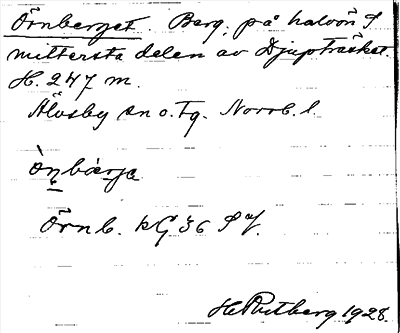 Örnberget. Berg. på halvön i
mittersta delen av Djupträsket.
H. 247 m.
Älvsby sn o. tg. Norrb. l.
ò̀n̥bærje
Örnb. kG 36 SV.
H Rutberg 1928.